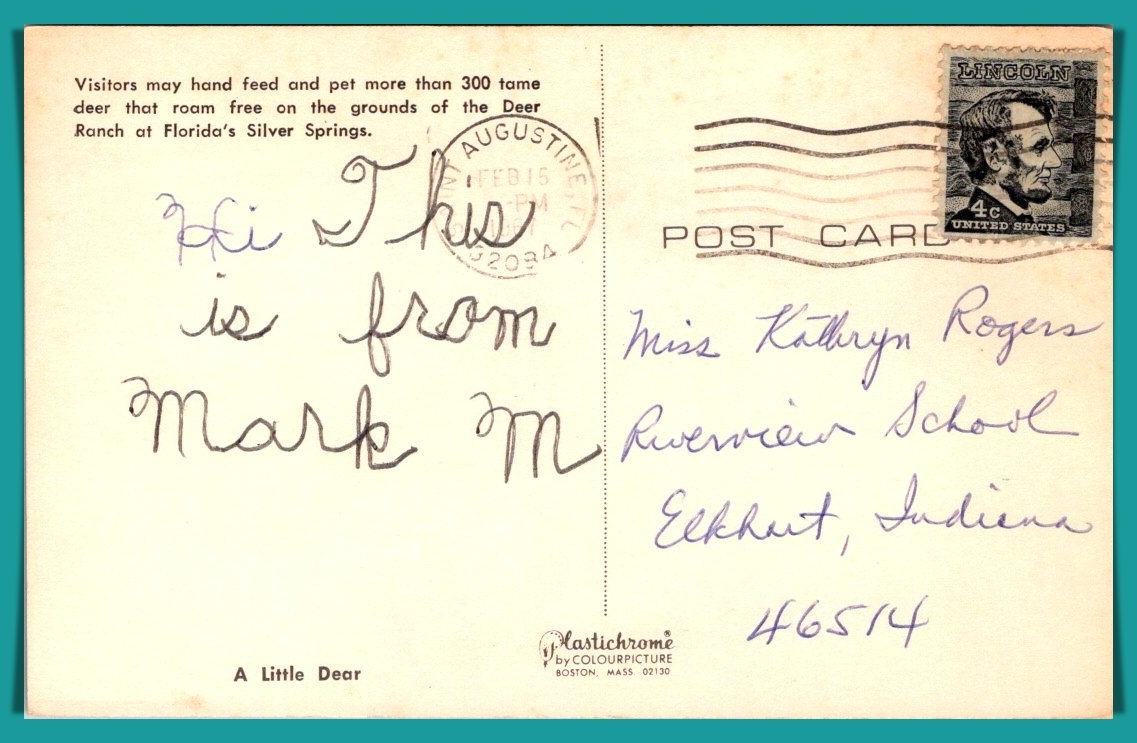 Visitors may hand feed and pet more than 300 tame
deer that roam free on the grounds of the Deer
Ranch at Florida's Silver Springs.
Hi This
is from
Mark M
AUGUSTINE, FL
FEB 15
PM
32084
LINCOLN
4c
UNITED STATES
POST CARD
Miss Kathryn Rogers
Riverview School
Elkhart, Indiana
46514
Plastichrome®
by COLOURPICTURE
BOSTON, MASS. 02130
A Little Dear